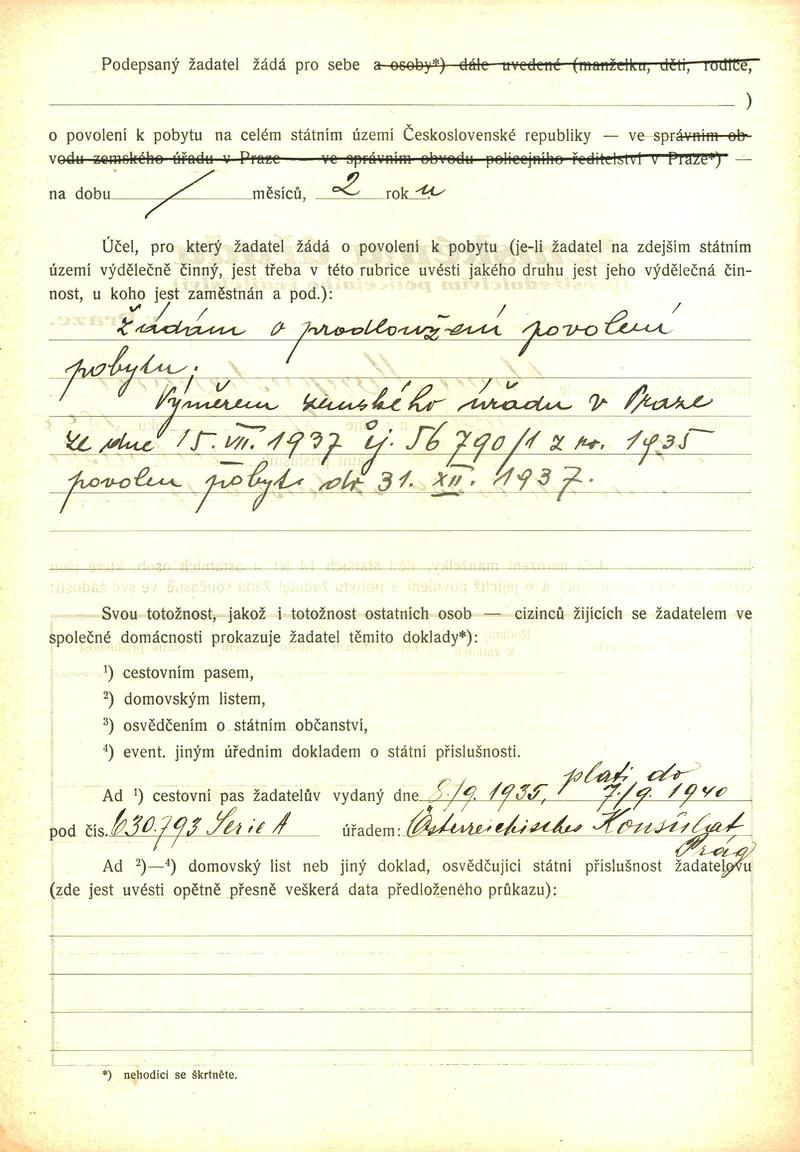 Podepsaný žadatel žádá pro sebe a osoby*) dále uvedené (manželku, děti, rodiče,
)
o povolení k pobytu na celém státním území Československé republiky — ve správním ob-
vodu zemského úřadu v Praze — ve správním obvodu policejního ředitelství v Praze*) —
na dobu / měsíců, 2 rok u
Účel, pro který žadatel žádá o povolení k pobytu (je-li žadatel na zdejším státním
území výdělečně činný, jest třeba v této rubrice uvésti jakého druhu jest jeho výdělečná čin-
nost, u koho jest zaměstnán a pod.):
Žádám o prodloužení povolení
pobytu.
Výměrem zemského úřadu v Praze
ze dne 15. VII. 1937 čj. 56790/1 z r. 1935
povolen pobyt do 31. XII. 1937.
Svou totožnost, jakož i totožnost ostatních osob — cizinců žijících se žadatelem ve
společné domácnosti prokazuje žadatel těmito doklady*):
¹) cestovním pasem,
²) domovským listem,
³) osvědčením o státním občanství,
⁴) event. jiným úředním dokladem o státní příslušnosti.
platí do
Ad ¹) cestovní pas žadatelův vydaný dne 8./9. 1935, 7./9. 1940
pod čís. 630.793 Serie A úřadem: Österreichisches Konsulat
Prag
Ad ²)—⁴) domovský list neb jiný doklad, osvědčující státní příslušnost žadatelovu
(zde jest uvésti opětně přesně veškerá data předloženého průkazu):
*) nehodící se škrtněte.